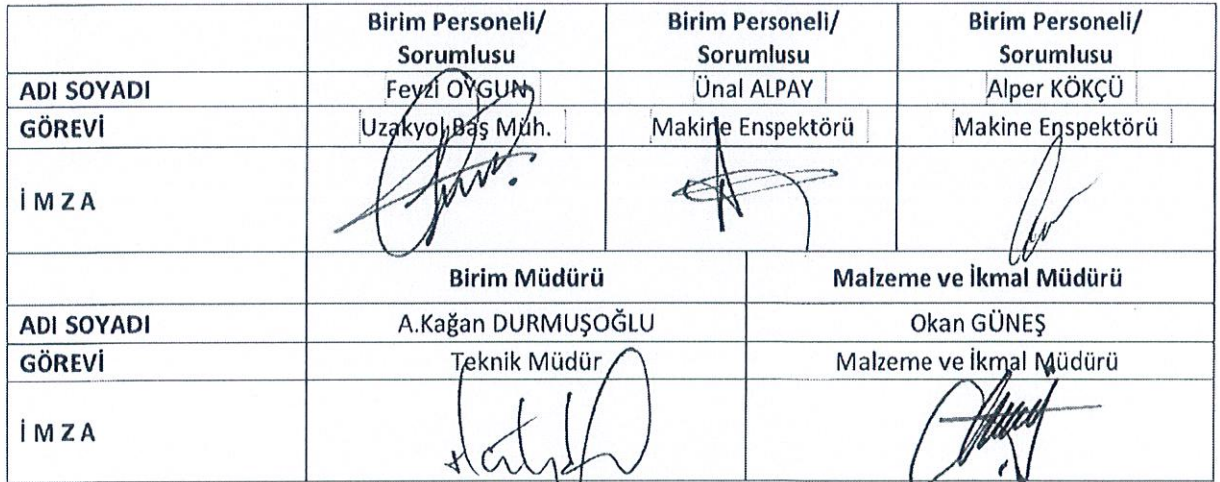 Birim Personeli/ Birim Personeli/ Birim Personeli/
Sorumlusu Sorumlusu Sorumlusu
ADI SOYADI Fevzi OYGUN Ünal ALPAY Alper KÖKÇÜ
GÖREVİ Uzakyol Baş Müh. Makine Enspektörü Makine Enspektörü
İMZA
Birim Müdürü Malzeme ve İkmal Müdürü
ADI SOYADI A.Kağan DURMUŞOĞLU Okan GÜNEŞ
GÖREVİ Teknik Müdür Malzeme ve İkmal Müdürü
İMZA